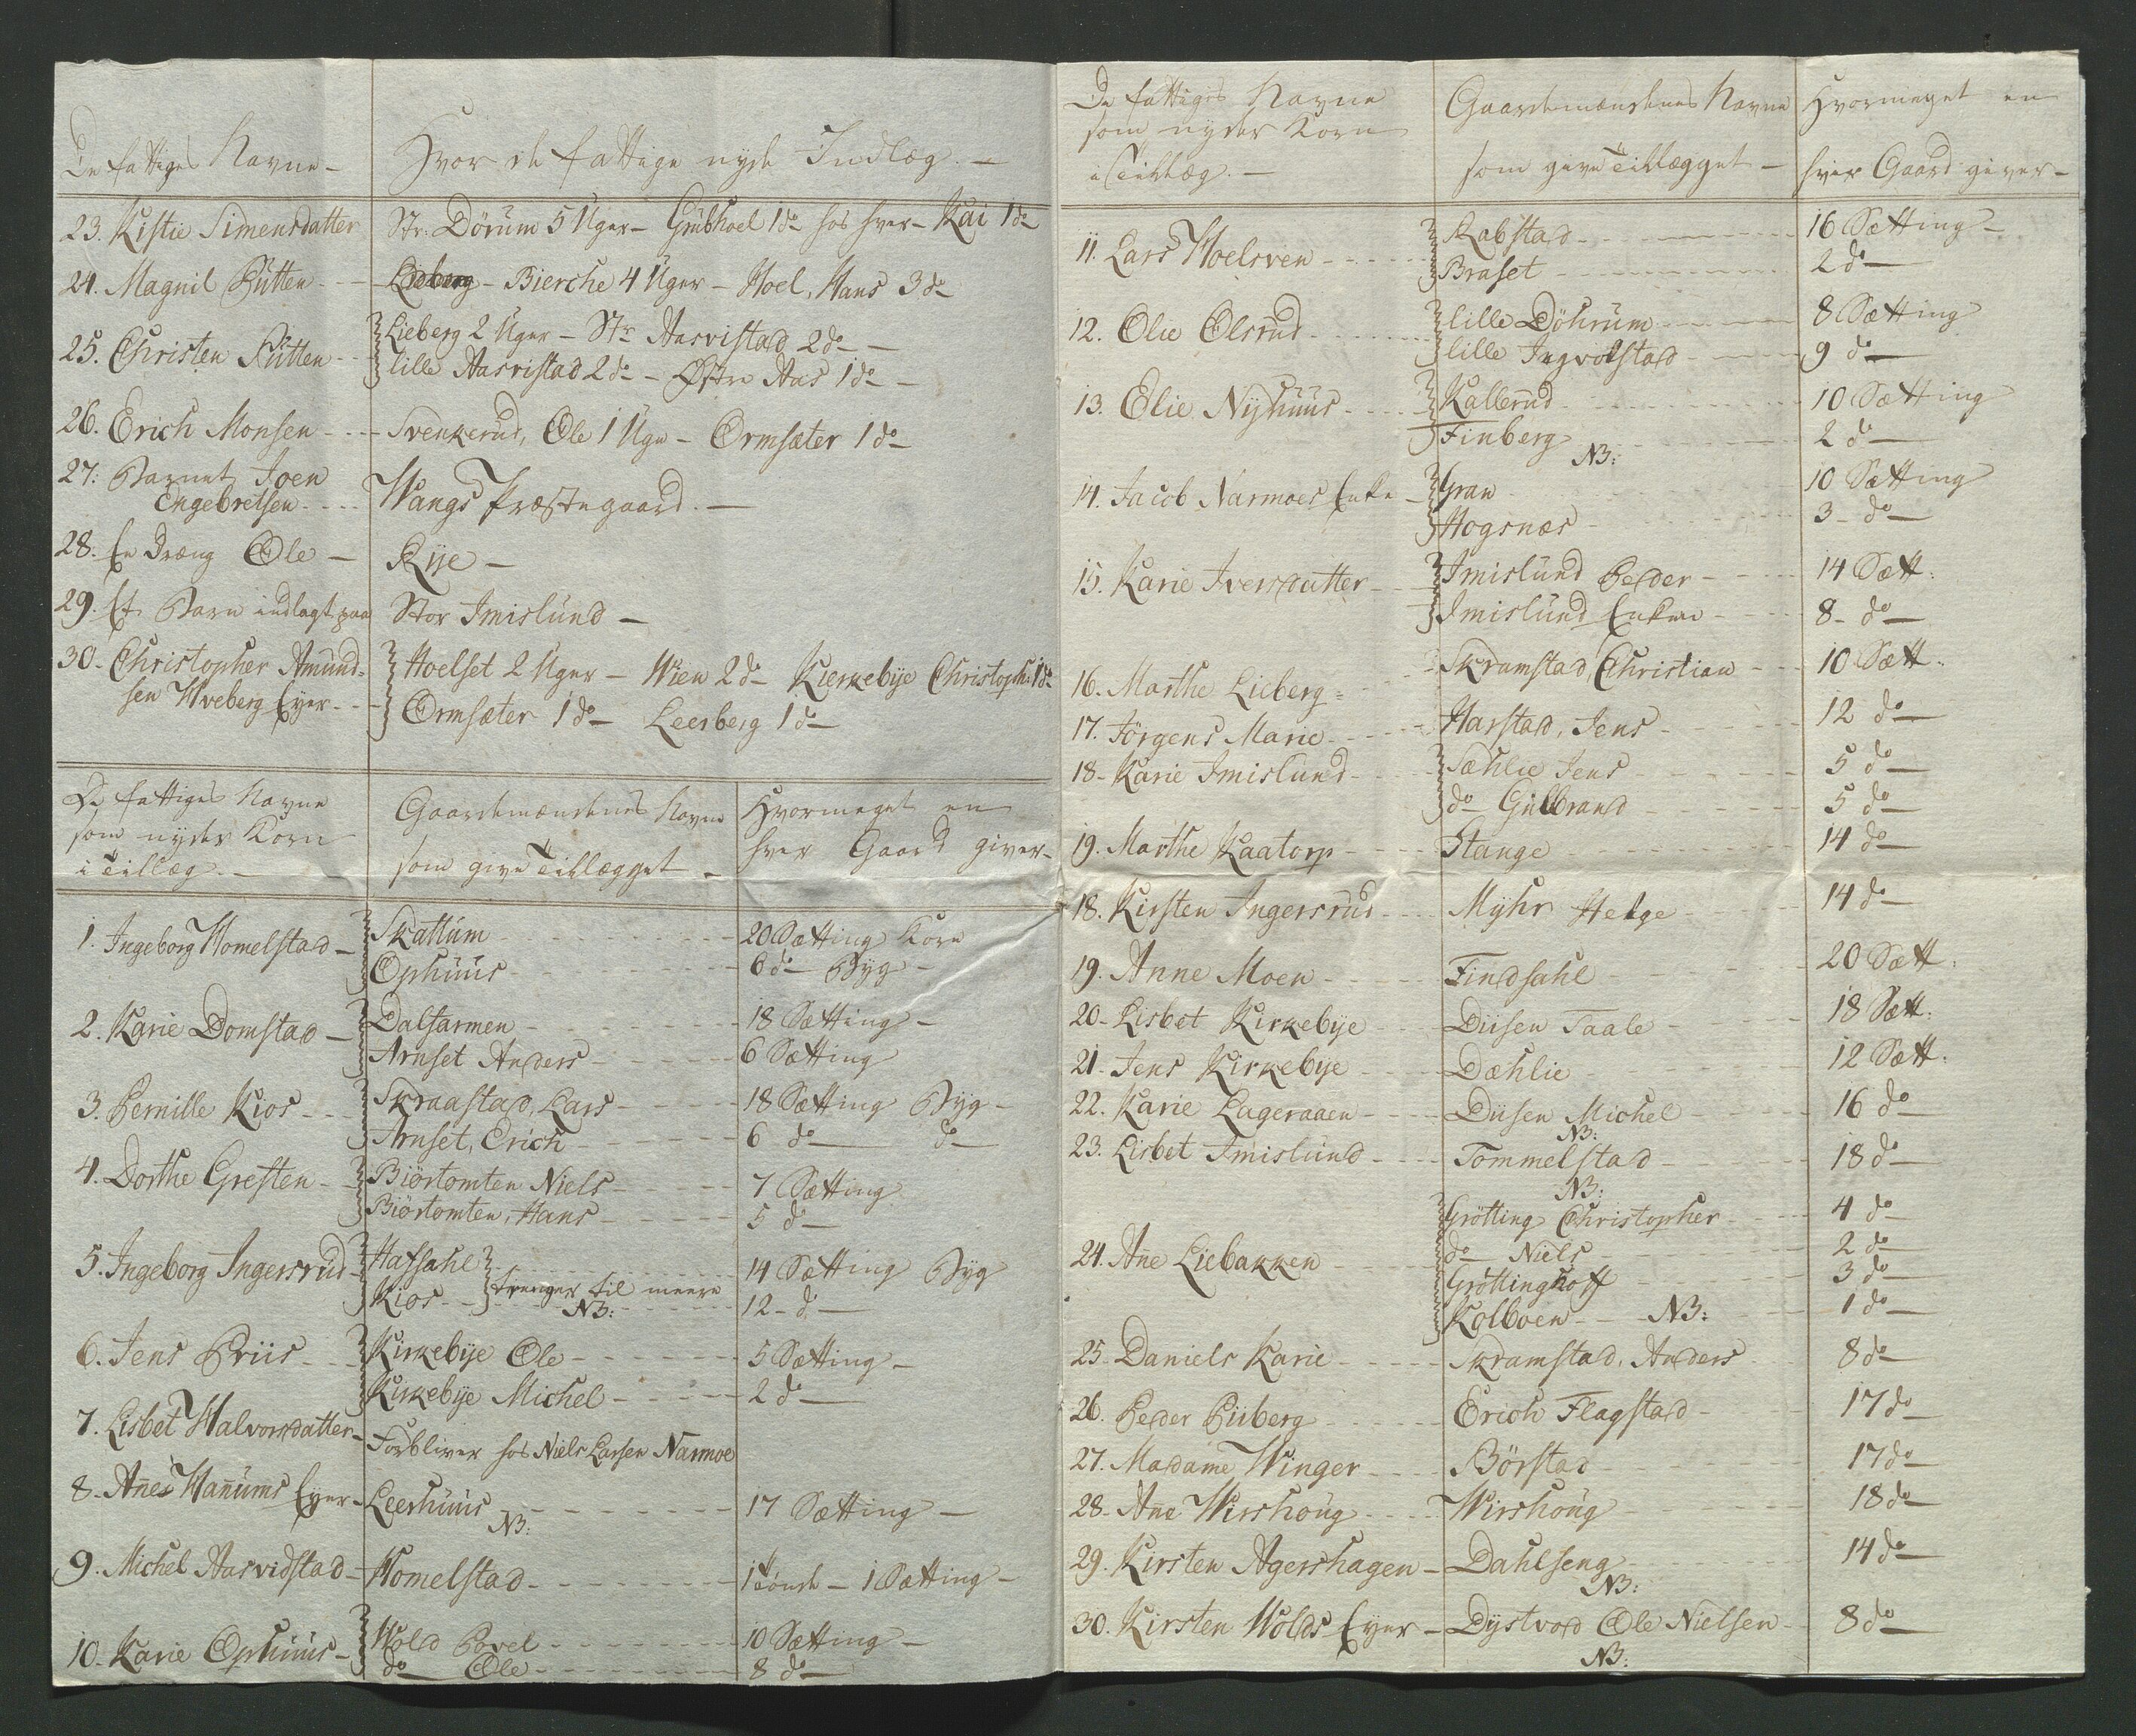 De fattiges Navne – Hvor de fattige nyde Indlæg. –
23. Kistie Simensdatter Str: Dörum 5 Uger – Grübhoel 1 do hos hver – Kai 1 do
24. Magnil Bütten - - - Bierche 4 Uger – Hoel, Hans 3 do
25. Christen Bütten - - Lieberg 2 Uger – Str Aasvistad 2 do –
lille Aasvistad 2 do – Østre Aas 1 do –
26. Erich Monsen - - - Svenkerud, Ole 1 Uge – Ormsæter 1 do
27. Barnet Joen
Engebretsen - - - Wangs Præstegaard. –
28. En Dreng Ole – Rye –
29. Et Barn indlagt paa Stor Imislund –
30. Christopher Amund-
sen Hveberg Eyer - - Hoelset 2 Uger – Wien 2 do Kierkebye Christoph: 1 do
Ormsæter 1 do Leerberg 1 do
De fattiges Navne
som nyder Korn
i Tillæg. –
Gaardmændenes Navne
som give Tillægget –
Hvormeget en
hver Gaard giver –
1. Ingeborg Homelstad – Skattum - - - 20 Sætting Korn
Ophuus - - - 6 do Byg –
2. Karie Domstad – Dalfarmen - - - 18 Sætting –
Arnset Anders - - - 6 Sætting
3. Pernille Kios - - - Skraastad, Lars - - - 18 Sætting Byg –
Arnset, Erich - - - 6 do do
4. Dorthe Gresten - - Biörtomten Niels - - - 7 Sætting
Biörtomten, Hans - - - 5 do
5. Ingeborg Ingersrud - Hafsahl - - - 14 Sætting Byg
Kios - - trenger til meere 12 - do
NB:
6. Jens Priis - - - Kirkebye Ole - - - 5 Sætting –
Kirkebye Michel - - - 2 do
7. Lisbet Halvorsdatter – Forbliver hos Niels Larsen Narmoe
8. Anes Hanums Eyer – Leerhuus - - - 17 Sætting –
NB:
9. Michel Aasvidstad – Homelstad - - - 1 Tönde – 1 Sætting –
10. Karie Ophuus – Hold Povel - - - 10 Sætting –
do Ole - - - 8 do
De fattiges Navne
som nyder Korn
i Tillæg. –
Gaardemændenes Navne
som give Tillægget –
Hvormeget en
hver Gaard giver –
11. Lars Hoelsven - - - Rabstad - - - 16 Sætting –
Braset - - - 2 do
12. Olie Olsrud - - - lille Döhrum - - - 8 Sætting
lille Ingvolstad - - - 9 do
13. Elie Nyhuus - - - Kallerud - - - 10 Sætting
Finberg - - - 2 do
NB:
14. Jacob Narmoes Enke - Gran - - - 10 Sætting
Hogsnæs - - - 3 - do
15. Karie Iversdatter - - Imislund Peder - - - 14 Sætt:
Imislund Enken - - - 8 - do
16. Marthe Lieberg - - - Skramstad, Christian - - - 10 Sætt:
17. Jörgens Marie - - - Harstad, Jens - - - 12 do
18. Karie Imislund - - - Sæhlie Jens - - - 5 do
do Gulbrand - - - 5 do
19. Marthe Kaatorp - - - Stange - - - 14 do
18. Kirsten Ingersrud - - - Myhr Helge - - - 14 do
19. Anne Moen - - - Findsahl - - - 20 Sætt:
20. Lisbet Kirkebye - - - Diisen Taale - - - 18 Sætt:
21. Jens Kirkebye - - - Dæhlie - - - 12 Sætt:
22. Karie Lageraaen - - - Diisen Michel - - - 16 do
NB:
23. Lisbet Imislund - - - Tommelstad - - - 18 do
NB:
24. Ane Liebakken - - - Grötting Christopher - - - 4 do
do Niels - - - 2 do
Gröttinghoff - - - 3 do
Kolboen - - NB: - - 1 do
25. Daniels Karie - - - Skramstad, Anders - 8 do
26. Peder Piiberg - - - Erich Flagstad - - 17 do
27. Madame Winger - - - Börstad - - - 17 do
28. Ane Wirshoug - - - Wirshoug - - - 18 do
29. Kirsten Agershagen – Dahlseng - - - 14 do
NB:
30. Kirsten Holds Eyer – Dystvold Ole Nielsen - 8 do
NB: